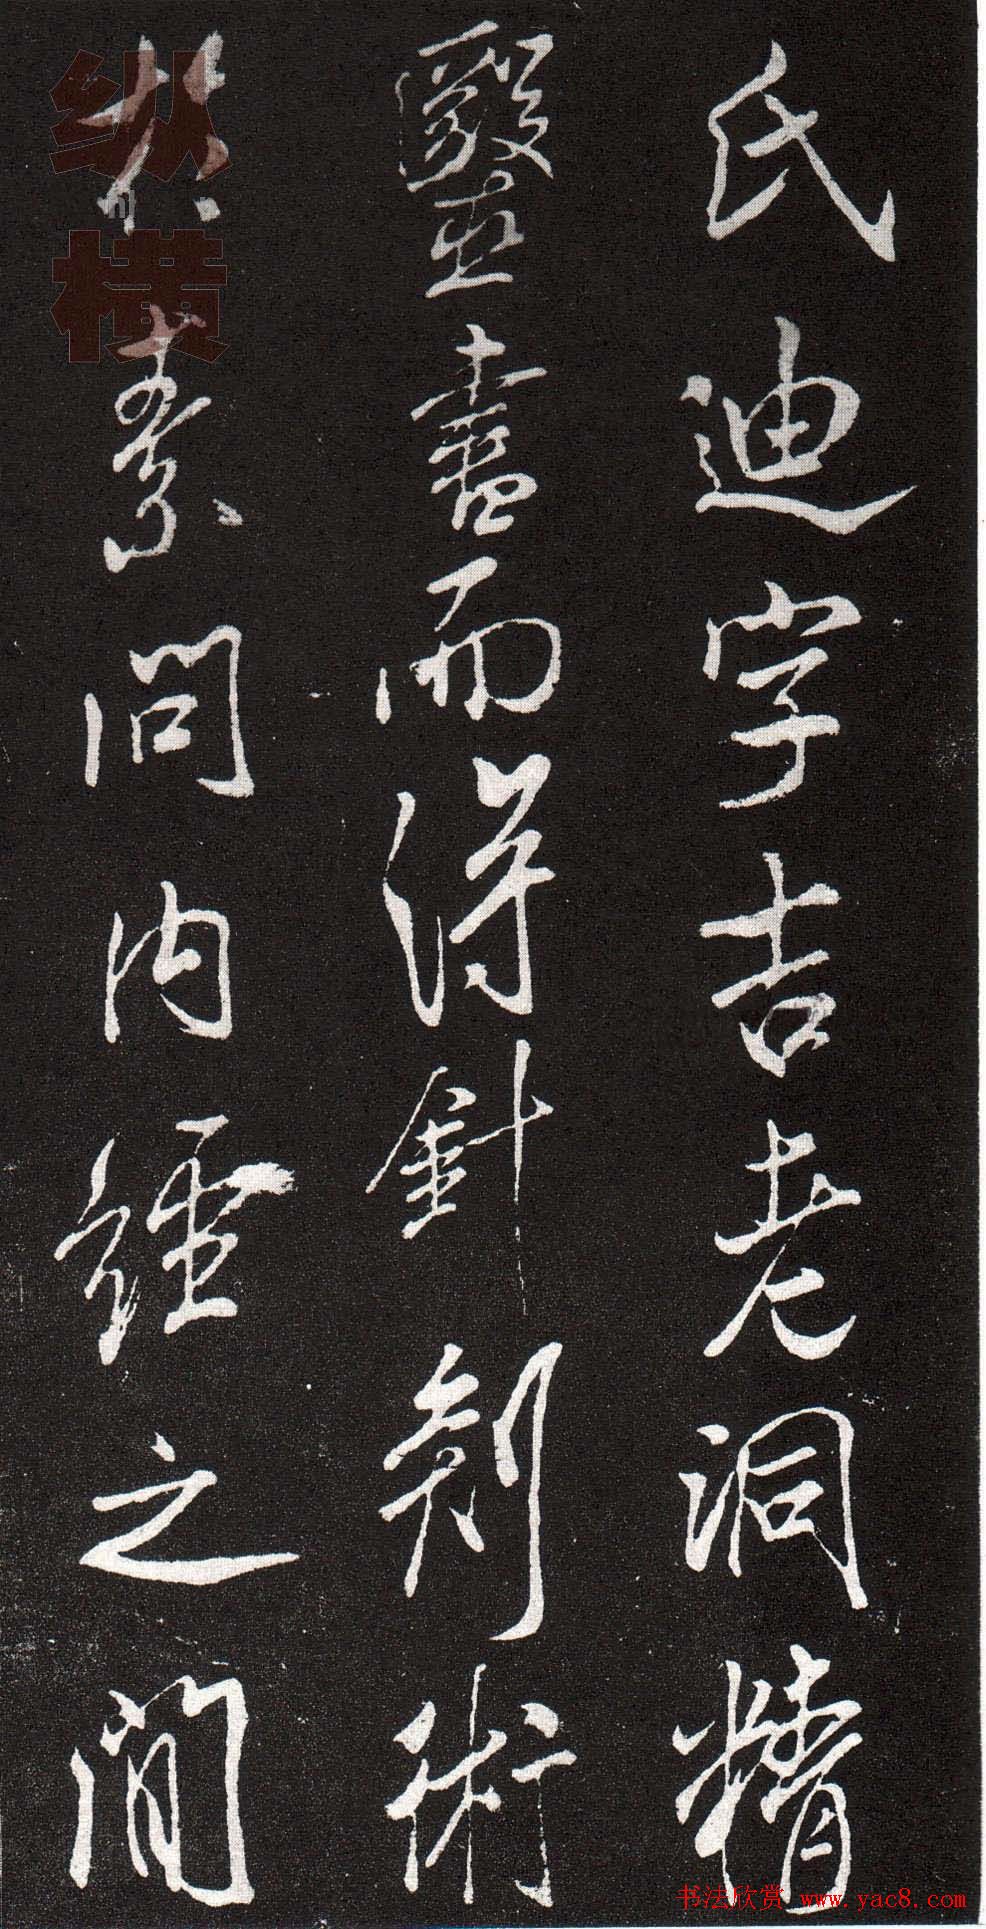 氏迪字吉老洞精
醫書而得針刺術
於素問內經之間
纵横
书法欣赏 www.yac8.com